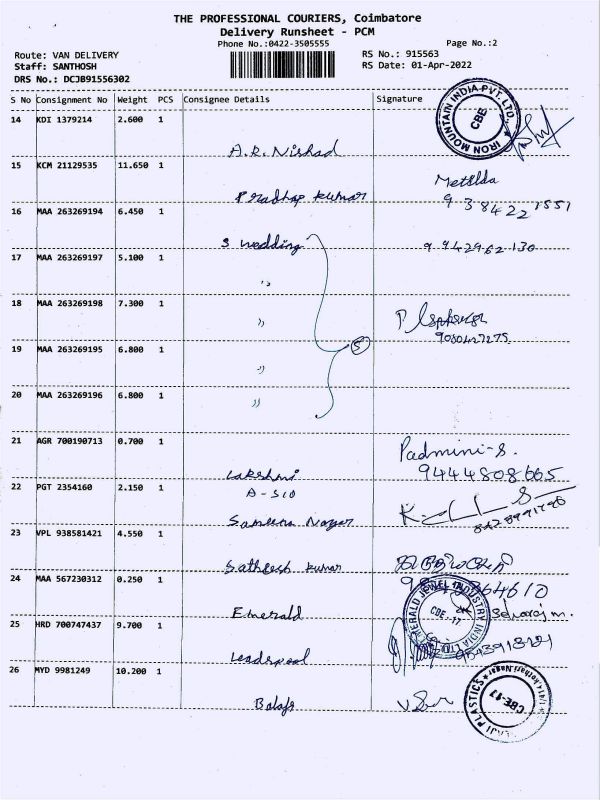 THE PROFESSIONAL COURIERS, Coimbatore
Delivery Runsheet - PCM
Phone No.:0422-3505555
Page No.:2
Route: VAN DELIVERY
RS No.: 915563
Staff: SANTHOSH
RS Date: 01-Apr-2022
DRS No.: DCJB91556302
S No Consignment No Weight PCS Consignee Details Signature
IRON MOUNTAIN INDIA PVT. LTD.
CBE
14 KDI 1379214 2.600 1
A.R. Nishad
15 KCM 21129535 11.650 1
Pradhap Kumar
9 38422 1551
16 MAA 263269194 6.450 1
S wedding
9 942962 130
17 MAA 263269197 5.100 1
"
18 MAA 263269198 7.300 1
"
19 MAA 263269195 6.800 1
5
"
20 MAA 263269196 6.800 1
"
21 AGR 700190713 0.700 1
Padmini-S.
Lakshmi
9444808665
22 PGT 2354160 2.150 1
A-510
Nagar
23 VPL 938581421 4.550 1
Sathish Kumar
24 MAA 567230312 0.250 1
EMERALD JEWEL INDUSTRY INDIA LTD
CBE-17
Selvaraj m.
Emerald
25 HRD 700747437 9.700 1
Leadspool
26 MYD 9981249 10.200 1
Balaji
PLASTICS
CBE-17